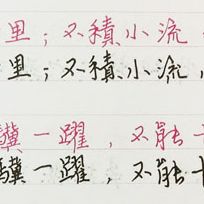 里；不積小流，
里；不積小流，
驥一躍，不能十
驥一躍，不能十